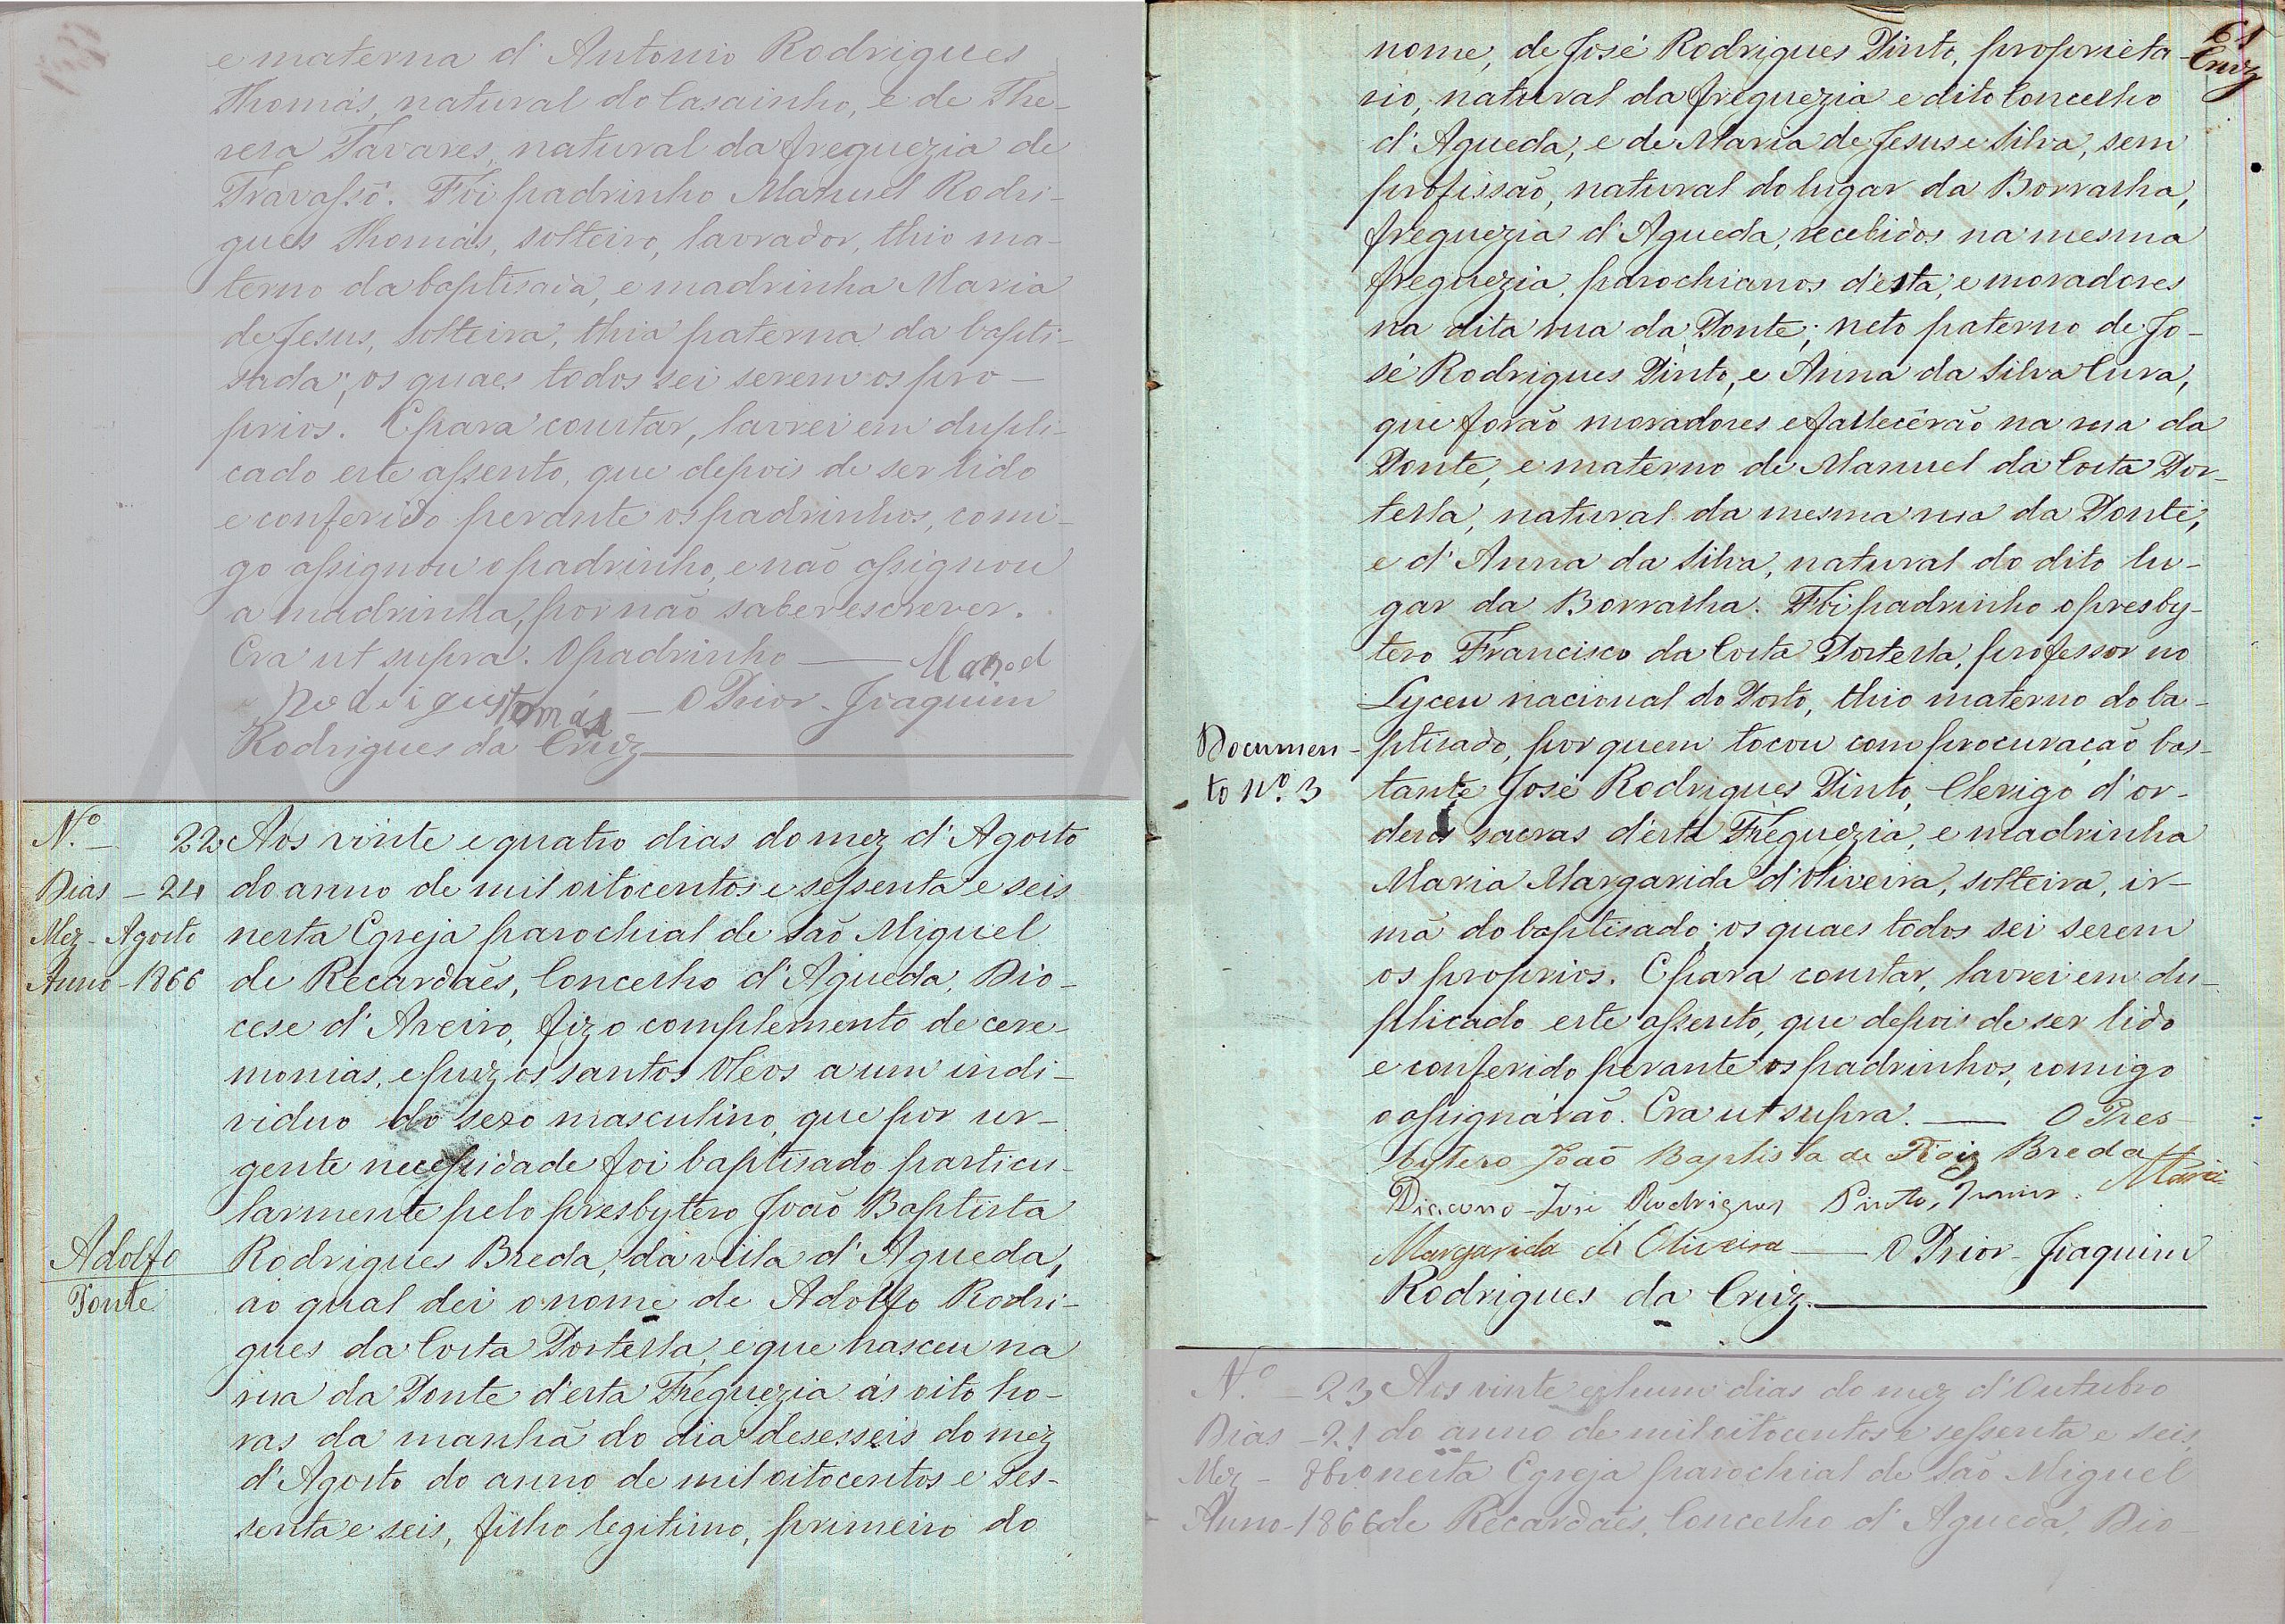 e materna d'Antonio Rodrigues
Thomás, natural do Casainho, e de The-
resa Tavares, natural da freguezia de
Travassô. Foi padrinho Manuel Rodri-
gues Thomás, solteiro, lavrador, thio ma-
terno da baptisada, e madrinha Maria
de Jesus, solteira, thia paterna da bapti-
sada; os quaes todos sei serem os pro-
prios. E para constar, lavrei em dupli-
cado este assento, que depois de ser lido
e conferido perante os padrinhos, comi-
go assignou o padrinho, e não assignou
a madrinha, por não saber escrever.
Era ut supra. O padrinho — Manoel
Rodrigues Tomás — O Prior - Joaquim
Rodrigues da Cruz
N.º - 22 Aos vinte e quatro dias do mez d'Agosto
Dias - 24 do anno de mil oitocentos e sessenta e seis
Mez - Agosto nesta Egreja parochial de São Miguel
Anno - 1866 de Recardães, Concelho d'Agueda, Dio-
cese d'Aveiro, fiz o complemento de cere-
monias, e puz os santos Oleos a um indi-
viduo do sexo masculino, que por ur-
gente necessidade foi baptisado particu-
larmente pelo presbytero João Baptista
Adolfo Rodrigues Breda, da villa d'Agueda,
Ponte ao qual dei o nome de Adolfo Rodri-
gues da Costa Portella, e que nasceu na
rua da Ponte d'esta Freguezia ás oito ho-
ras da manhã do dia desesseis do mez
d'Agosto do anno de mil oitocentos e ses-
senta e seis, filho legitimo, primeiro do
61
Cruz
nome, de José Rodrigues Pinto, proprieta-
rio, natural da freguezia e dito Concelho
d'Agueda, e de Maria de Jesus e Silva, sem
profissão, natural do lugar da Borralha,
freguezia d'Agueda, recebidos na mesma
freguezia, parochianos d'esta, e moradores
na dita rua da Ponte; neto paterno de Jo-
sé Rodrigues Pinto, e Anna da Silva Cura,
que forão moradores e fallecêrão na rua da
Ponte, e materno de Manuel da Costa Por-
tella, natural da mesma rua da Ponte,
e d'Anna da Silva, natural do dito lu-
gar da Borralha. Foi padrinho o presby-
tero Francisco da Costa Portella, professor no
Lyceu nacional do Porto, thio materno do ba-
Documen- ptisado, por quem tocou com procuração bas-
to N.º 3 tante José Rodrigues Pinto, Clerigo d'or-
dens sacras d'esta Freguezia, e madrinha
Maria Margarida d'Oliveira, solteira, ir-
mã do baptisado; os quaes todos sei serem
os proprios. E para constar, lavrei em du-
plicado este assento, que depois de ser lido
e conferido perante os padrinhos, comigo
o assignárão. Era ut supra. — O Pres-
bytero João Baptista de Roiz Breda
Diacono - José Rodrigues Pinto, Junior. Maria
Margarida de Oliveira — O Prior - Joaquim
Rodrigues da Cruz.
N.º - 23 Aos vinte e hum dias do mez d'Outubro
Dias - 21 do anno de mil oitocentos e sessenta e seis,
Mez - 8bro nesta Egreja parochial de São Miguel
Anno - 1866 de Recardães, Concelho d'Agueda, Dio-